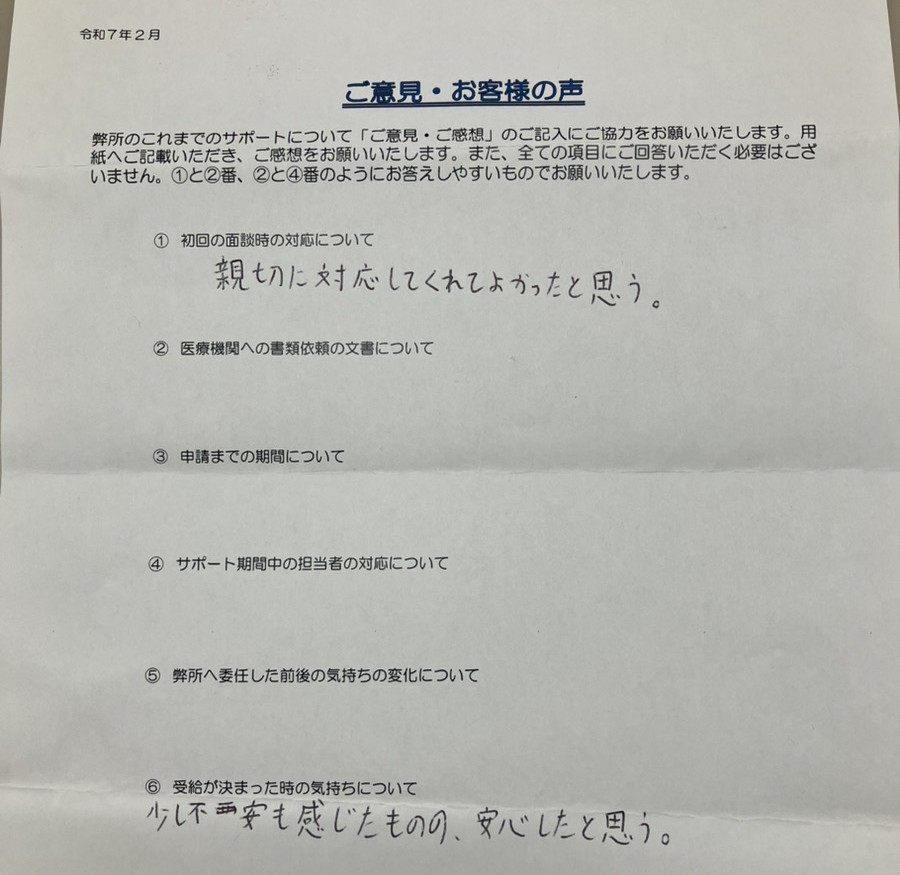 令和７年２月
ご意見・お客様の声
弊所のこれまでのサポートについて「ご意見・ご感想」のご記入にご協力をお願いいたします。用
紙へご記載いただき、ご感想をお願いいたします。また、全ての項目にご回答いただく必要はござ
いません。①と②番、②と④番のようにお答えしやすいものでお願いいたします。
① 初回の面談時の対応について
親切に対応してくれてよかったと思う。
② 医療機関への書類依頼の文書について
③ 申請までの期間について
④ サポート期間中の担当者の対応について
⑤ 弊所へ委任した前後の気持ちの変化について
⑥ 受給が決まった時の気持ちについて
少し不安も感じたものの、安心したと思う。